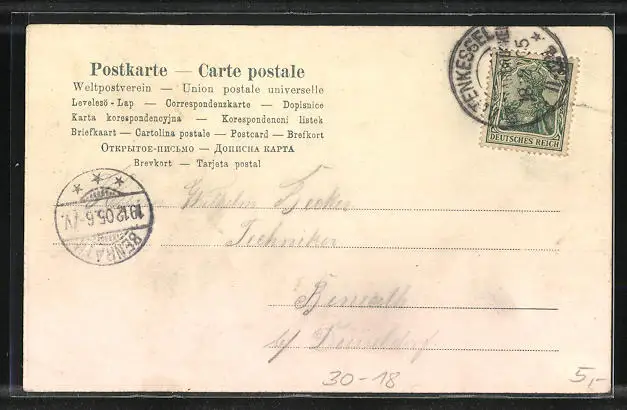 Postkarte — Carte postale
Weltpostverein — Union postale universelle
Levelező-Lap — Correspondenzkarte — Dopisnice
Karta korespondencyjna — Korespondencni listek
Briefkaart — Cartolina postale — Postcard — Brefkort
Открытое-письмо — Дописна карта
Brevkort — Tarjeta postal
DEUTSCHES REICH
BENRATH
19.12.05.6-7V.
Wilhelm Becker
Techniker
Benrath
b/ Düsseldorf
30-18
5,-